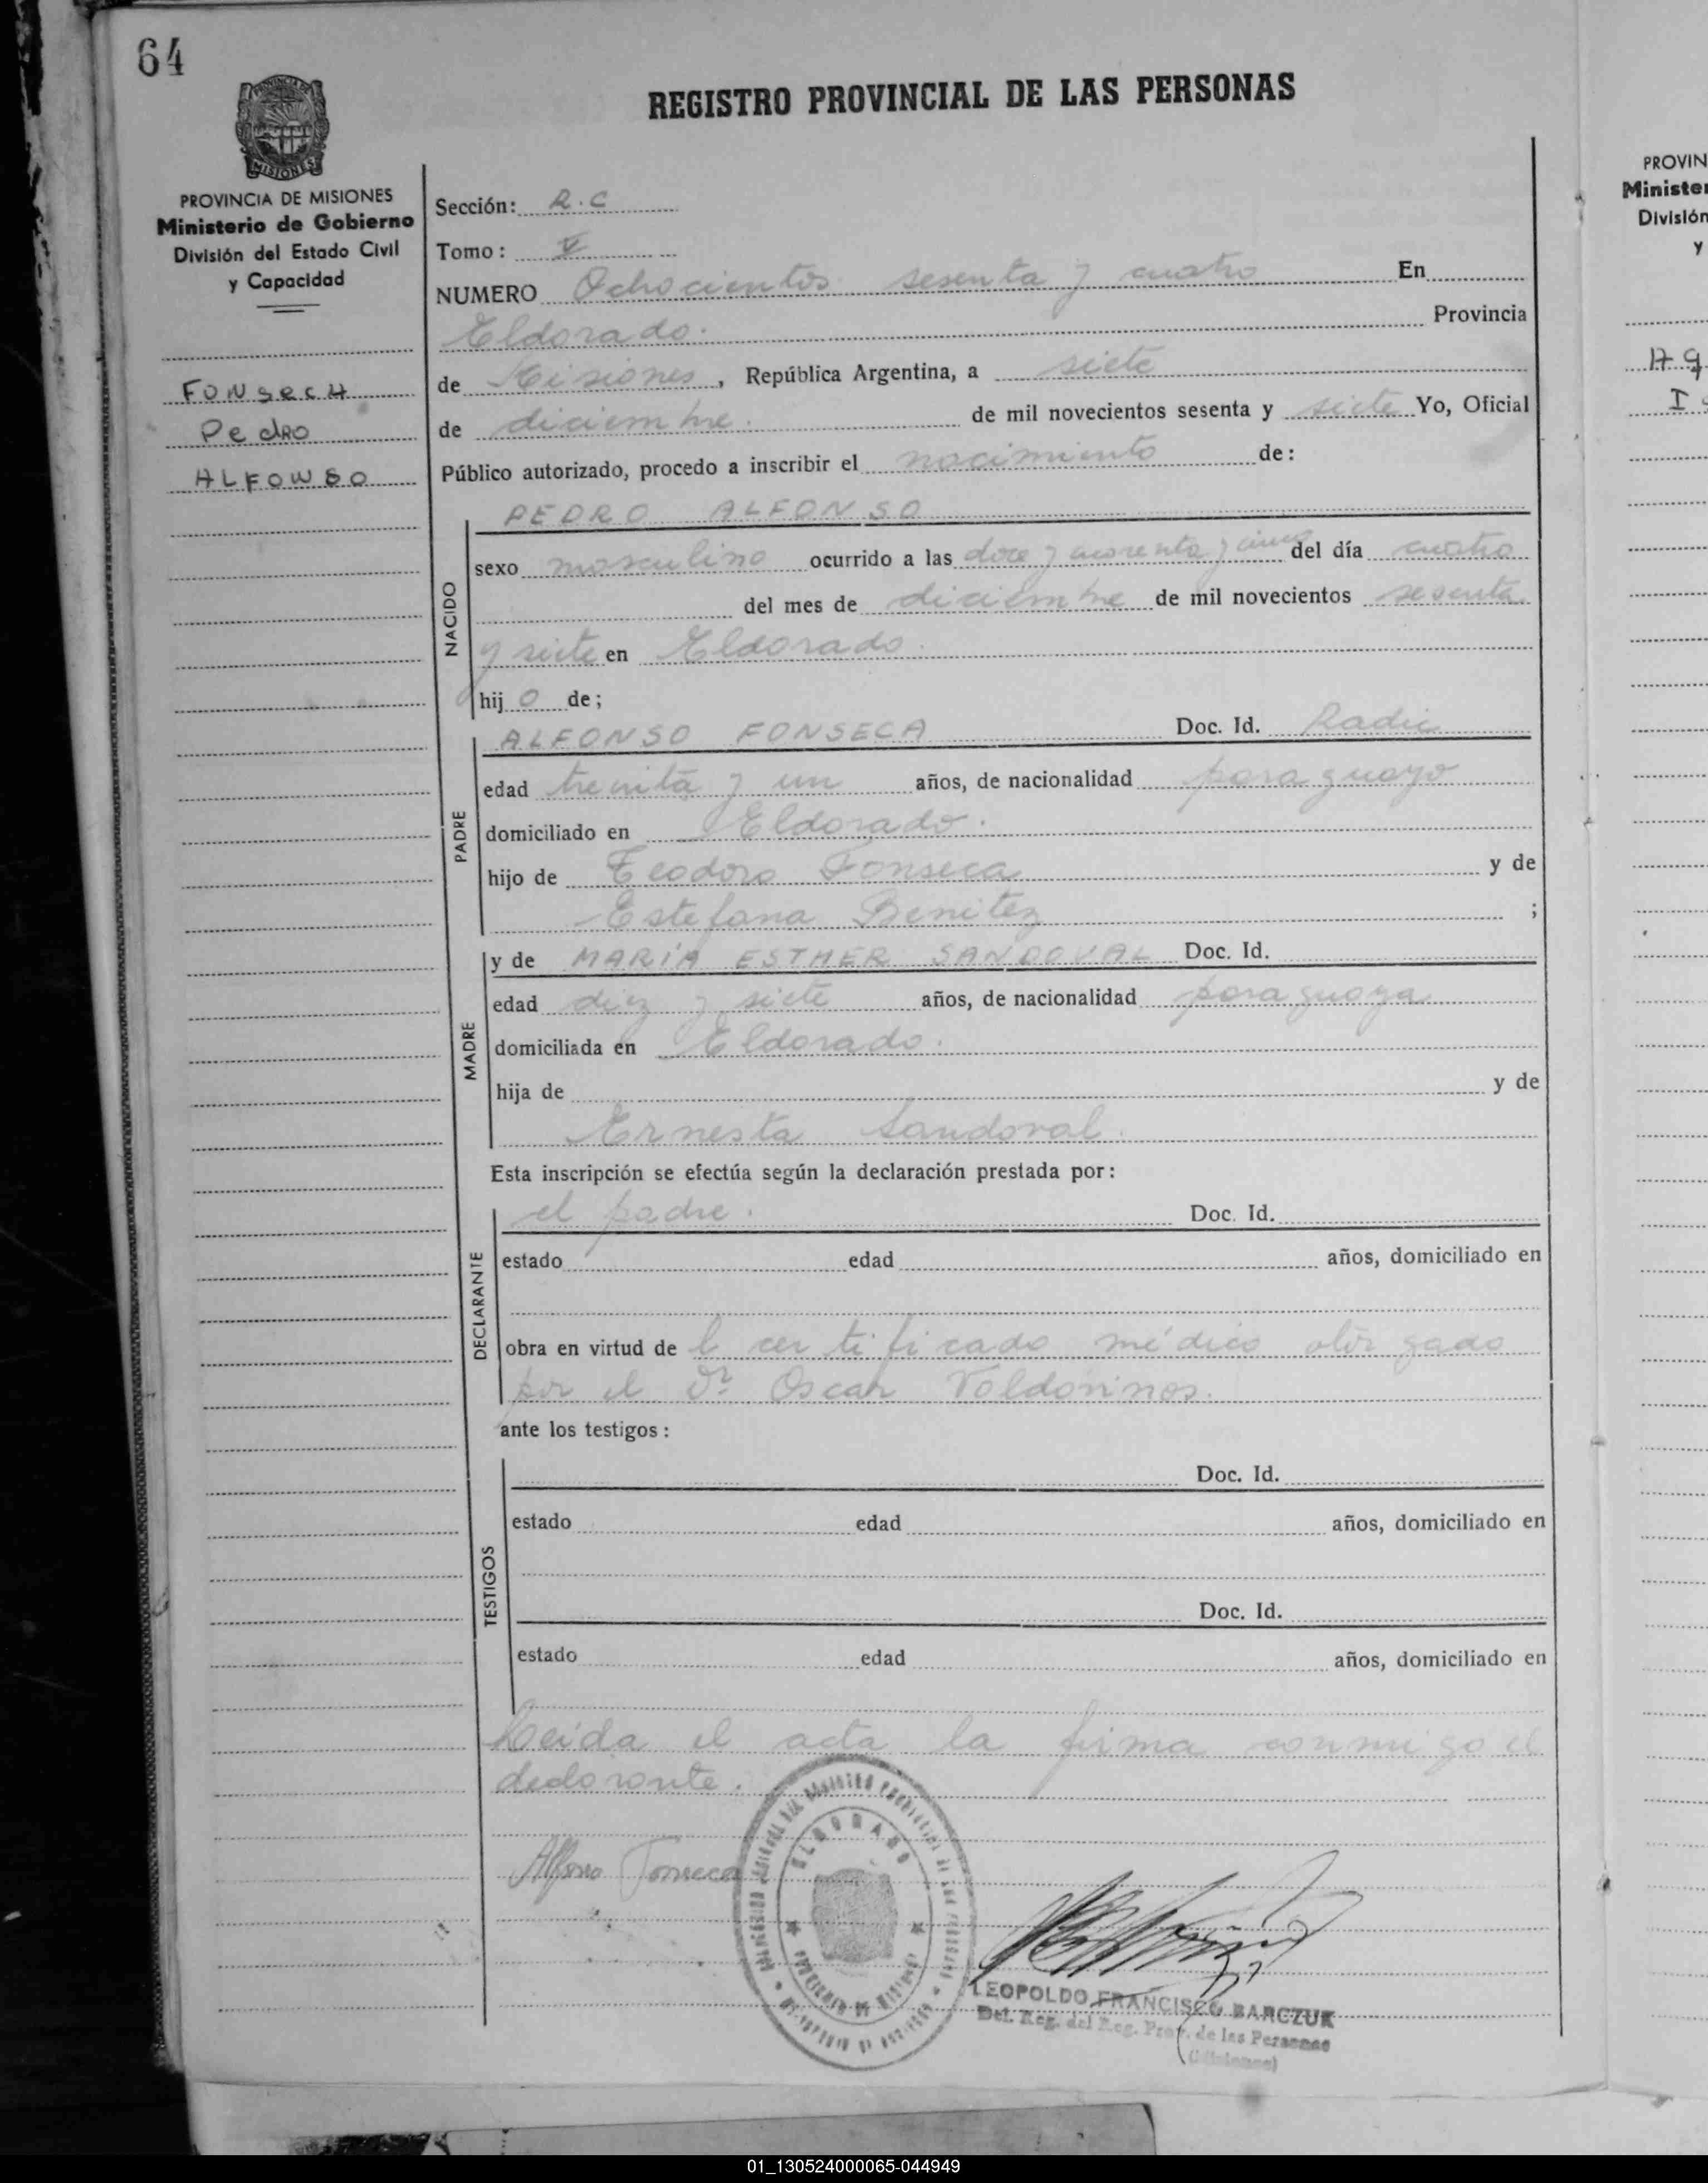 64
REGISTRO PROVINCIAL DE LAS PERSONAS
PROVINCIA DE MISIONES
MISIONES
PROVINCIA DE MISIONES
Ministerio de Gobierno
División del Estado Civil
y Capacidad
FONSECA
PedRO
ALFONSO
Sección: R.C
Tomo: V
NUMERO Ochocientos sesenta y cuatro En
Eldorado. Provincia
de Misiones, República Argentina, a siete
de diciembre. de mil novecientos sesenta y siete Yo, Oficial
Público autorizado, procedo a inscribir el nacimiento de:
NACIDO
PEDRO ALFONSO
sexo masculino ocurrido a las doce y cuarenta y cinco del día cuatro
del mes de diciembre de mil novecientos sesenta
y siete en Eldorado.
hij o de;
PADRE
ALFONSO FONSECA Doc. Id. Radic
edad treinta y un años, de nacionalidad paraguayo
domiciliado en Eldorado.
hijo de Teodoro Fonseca y de
Estefana Benitez ;
MADRE
y de MARÍA ESTHER SANDOVAL Doc. Id.
edad diez y siete años, de nacionalidad paraguaya
domiciliada en Eldorado.
hija de y de
Ernesta Sandoval.
Esta inscripción se efectúa según la declaración prestada por:
DECLARANTE
el padre. Doc. Id.
estado edad años, domiciliado en
obra en virtud de l certificado médico otorgado
por el Dr. Oscar Valdovinos.
ante los testigos:
TESTIGOS
Doc. Id.
estado edad años, domiciliado en
Doc. Id.
estado edad años, domiciliado en
Leida el acta la firma conmigo el
declarante.
Alfonso Fonseca
ELDORADO
LEOPOLDO FRANCISCO BARCZUK
Del. Reg. del Reg. Prov. de las Personas
(Misiones)
PROVIN
Minister
División
y
01_130524000065-044949